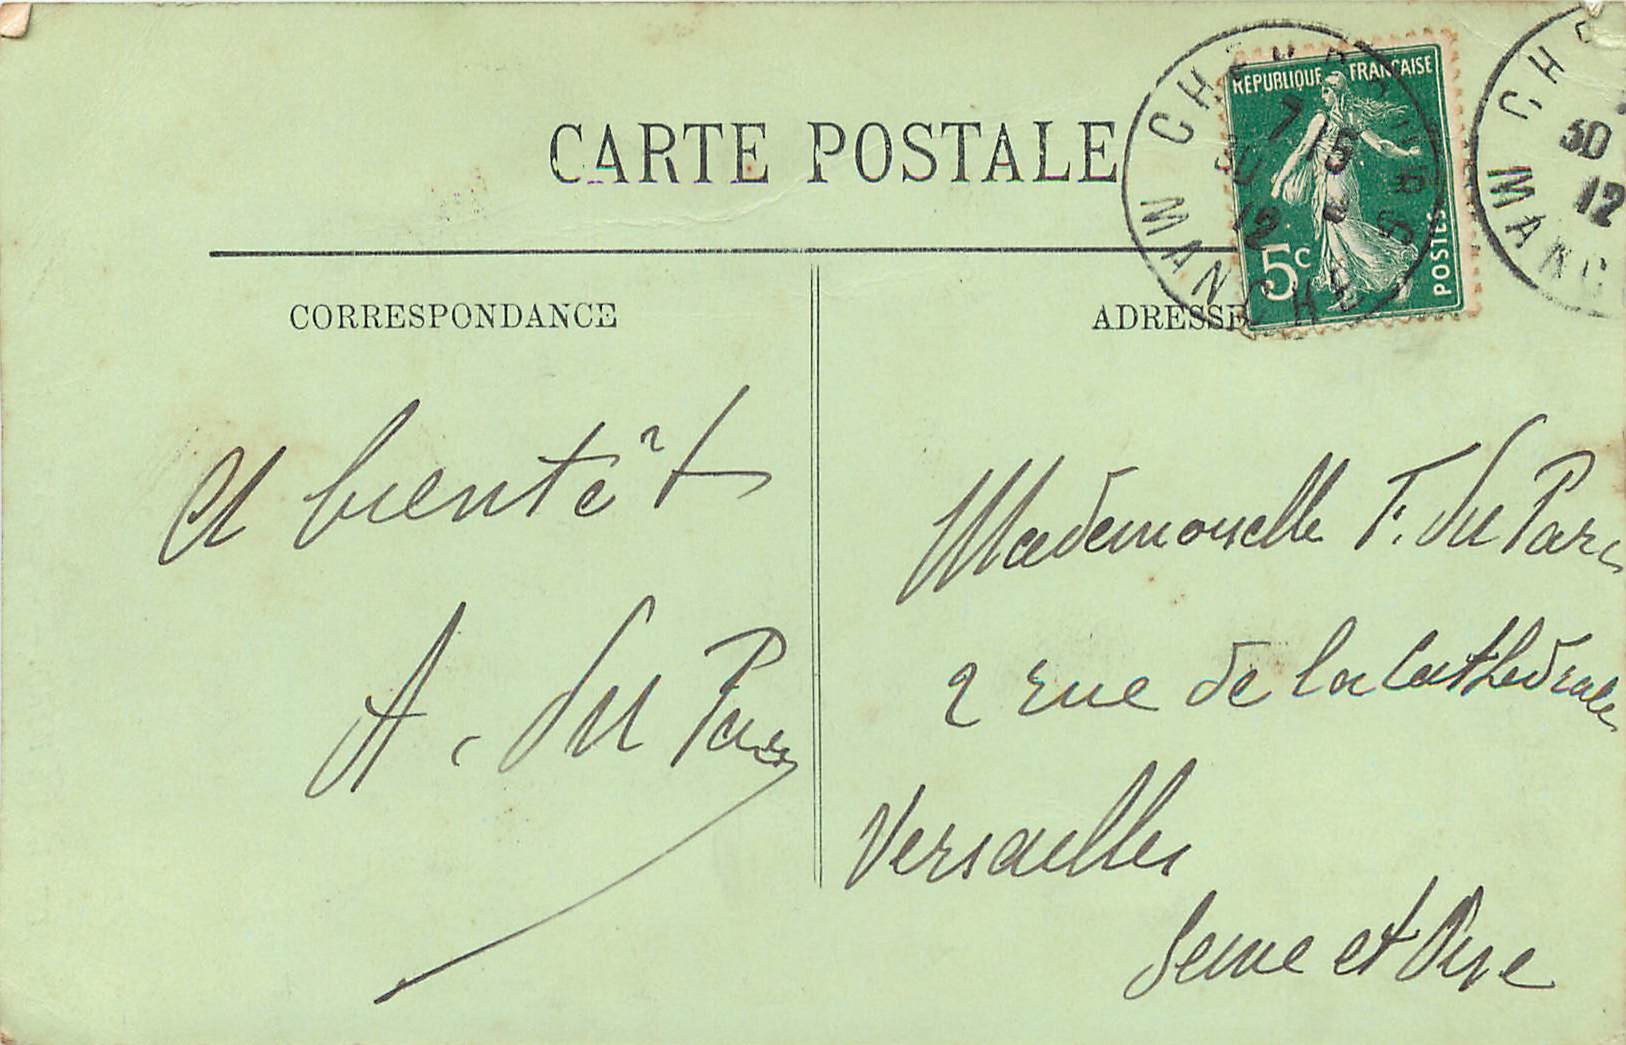 CARTE POSTALE
CORRESPONDANCE
ADRESSE
REPUBLIQUE FRANÇAISE
5c
POSTES
CHERBOURG
7 15
12
MANCHE
30
12
MANC
A bientôt
A. du Parc
Mademoiselle F. du Parc
2 rue de la Cathedrale
Versailles
Seine et Oise